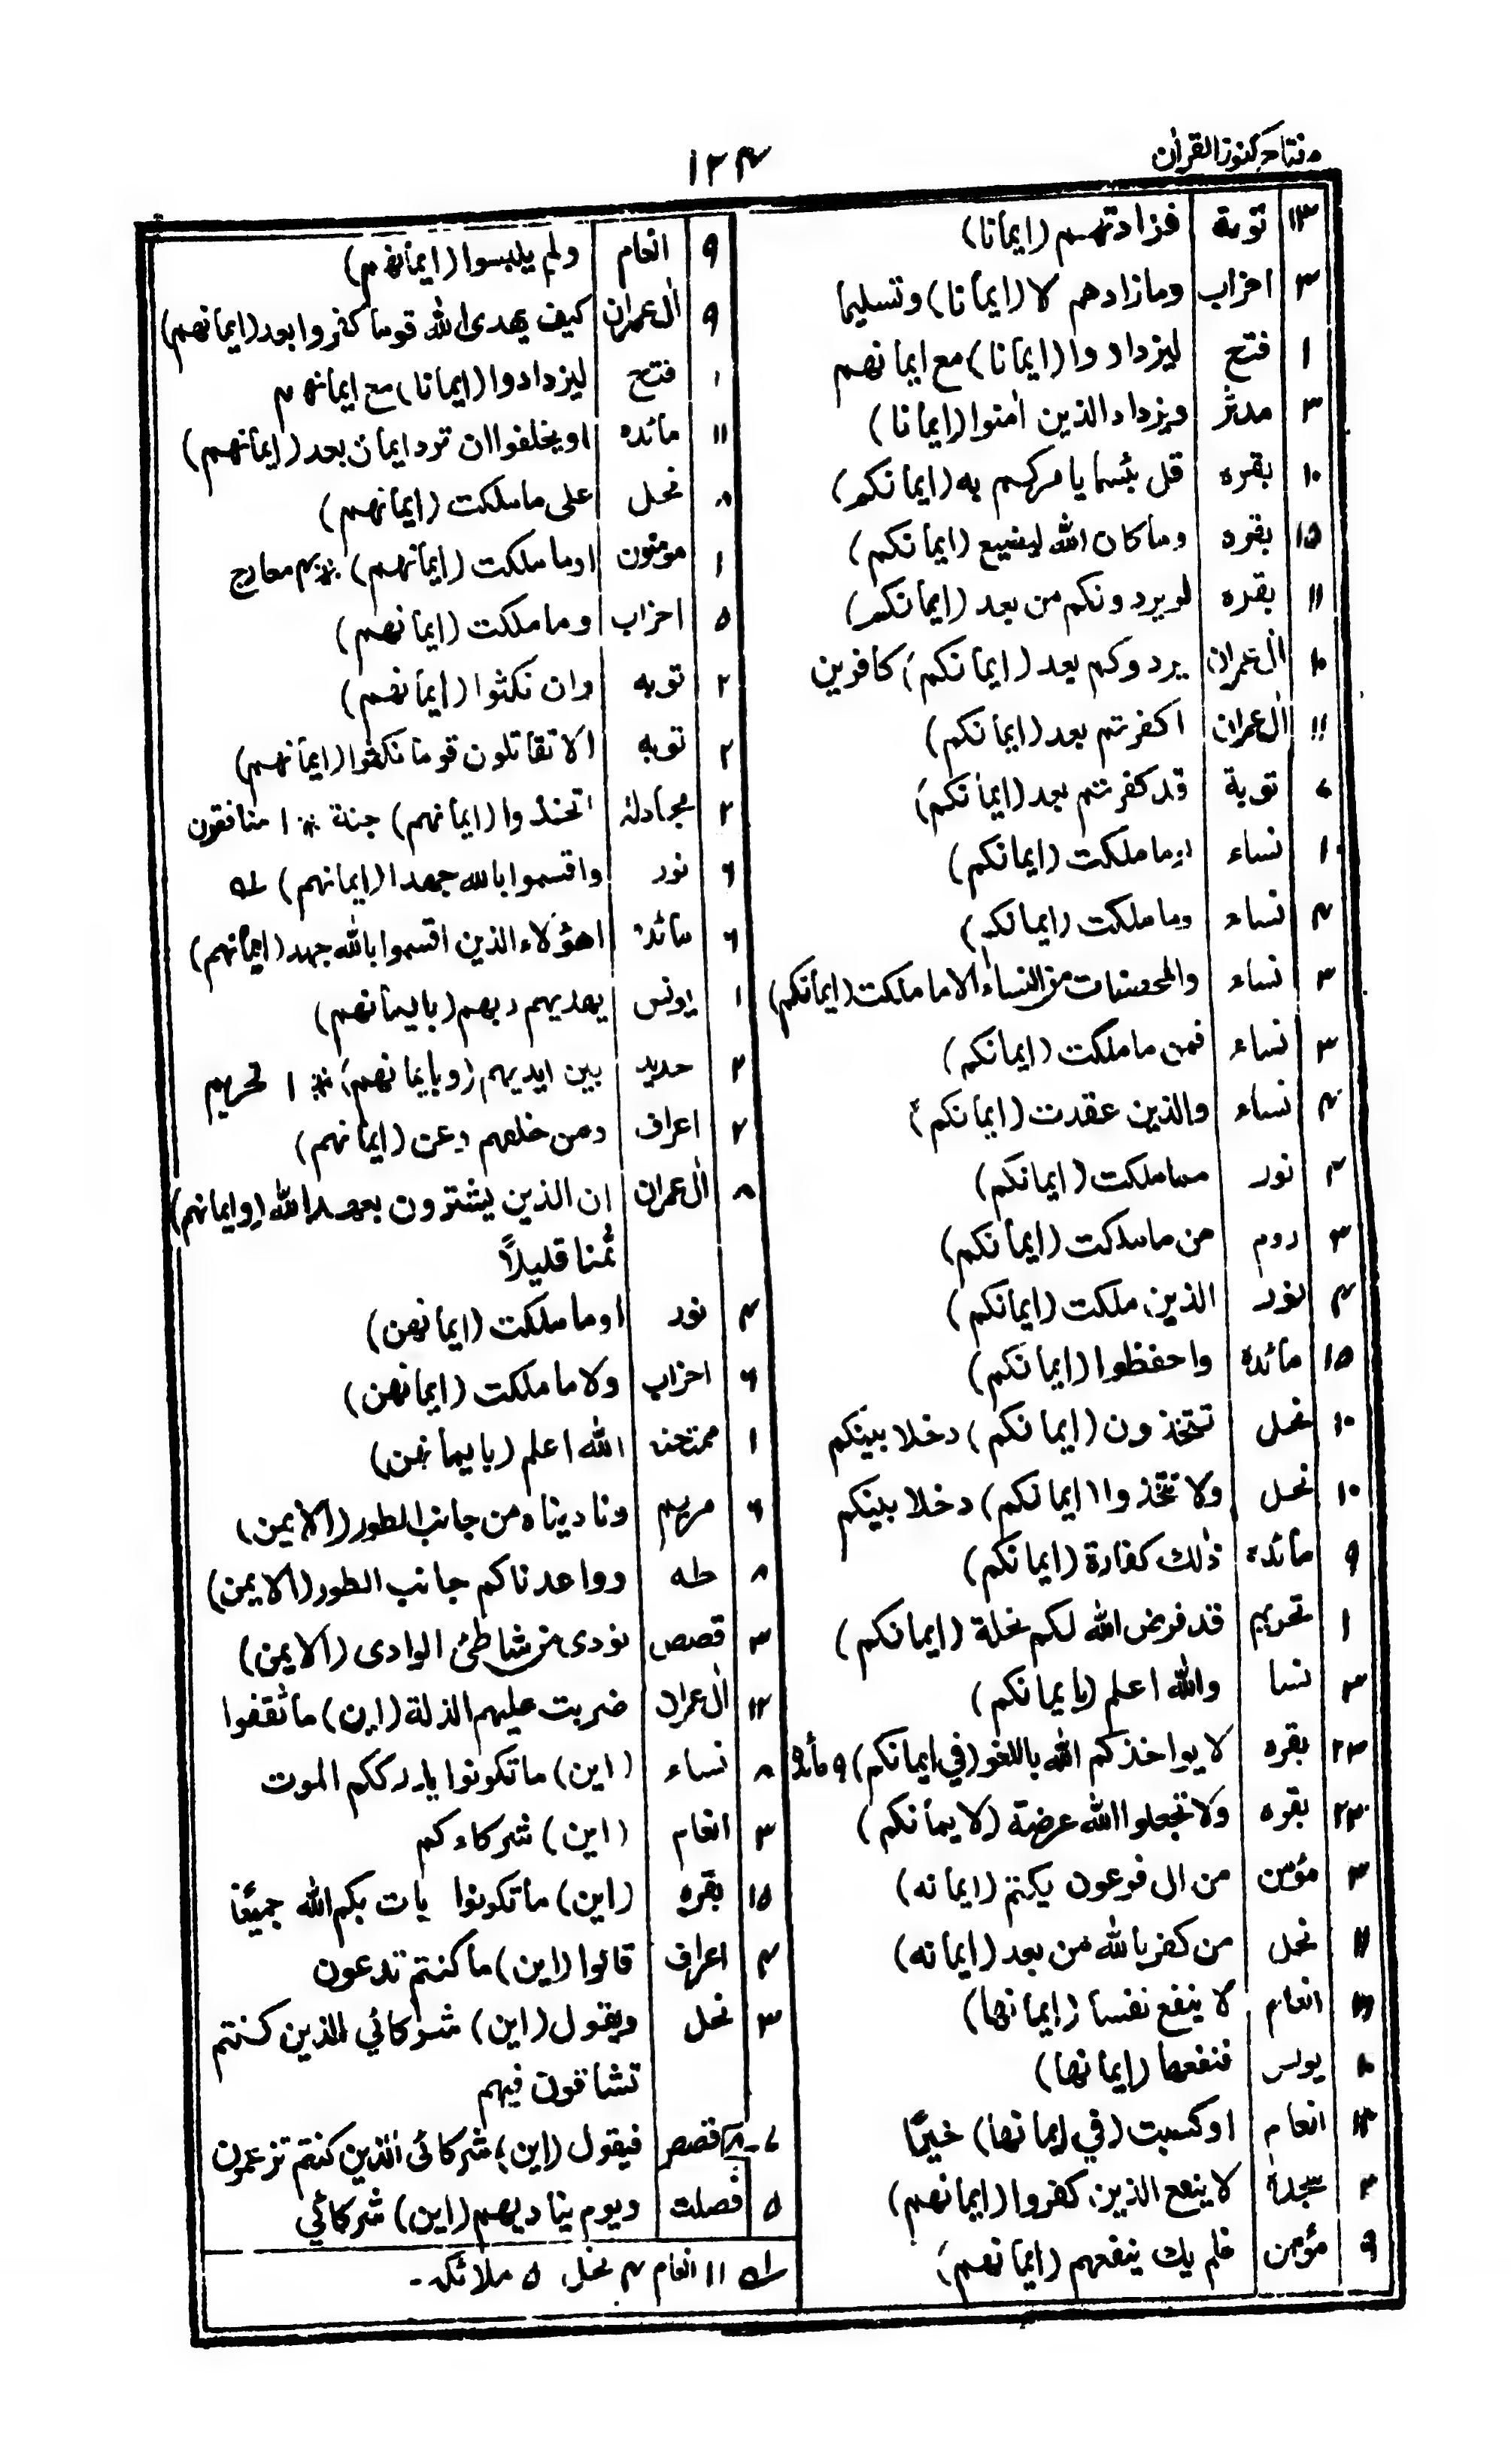 مفتاح كنوز القرآن
۱۲۴
۱۳ توبة فزادتهم (ايمانا)
۳ احزاب ومازادهم لا (ايمانا) وتسليما
۱ فتح ليزدادوا (ايمانا) مع ايمانهم
۳ مدثر ويزداد الذين اٰمنوا (ايمانا)
۱۰ بقره قل بئسما يامركم به (ايمانكم)
۱۵ بقره وماكان الله ليضيع (ايمانكم)
۱۱ بقره لويردونكم من بعد (ايمانكم)
۱۰ اٰل عمران يردوكم بعد (ايمانكم) كافرين
۱۱ اٰل عمران اكفرتم بعد (ايمانكم)
توبة قد كفرتم بعد (ايمانكم)
۱ نساء اوما ملكت (ايمانكم)
۴ نساء وما ملكت (ايمانكم)
۳ نساء والمحصنات من النساء الا ما ملكت (ايمانكم)
۳ نساء فمن ما ملكت (ايمانكم)
۴ نساء والذين عقدت (ايمانكم)
۴ نور مما ملكت (ايمانكم)
۳ روم من ما ملكت (ايمانكم)
۴ نور الذين ملكت (ايمانكم)
۱۵ مائدة واحفظوا (ايمانكم)
۱۰ نحل تتخذون (ايمانكم) دخلا بينكم
۱۰ نحل ولا تتخذوا (ايمانكم) دخلا بينكم
۹ مائدة ذٰلك كفارة (ايمانكم)
۱ تحريم قد فرض الله لكم تحلة (ايمانكم)
۳ نسا والله اعلم (بايمانكم)
۲۳ بقره لا يواخذكم الله باللغو (في ايمانكم) ۹ مائدة
۲۳ بقره ولا تجعلوا الله عرضة (لايمانكم)
۳ مؤمن من ال فرعون يكتم (ايمانه)
۱۱ نحل من كفر بالله من بعد (ايمانه)
انعام لا ينفع نفسا (ايمانها)
يونس فنفعها (ايمانها)
انعام اوكسبت (في ايمانها) خيرًا
۳ سجدة لا ينفع الذين كفروا (ايمانهم)
۹ مؤمن فلم يك ينفعهم (ايمانهم)
۹ انعام ولم يلبسوا (ايمانهم)
۹ اٰل عمران كيف يهدى الله قوما كفروا بعد (ايمانهم)
۱ فتح ليزدادوا (ايمانا) مع ايمانهم
۱۱ مائده او يخلفوا ان ترد ايمان بعد (ايمانهم)
۸ نحل على ما ملكت (ايمانهم)
۱ مومنون اوما ملكت (ايمانهم) معارج
۵ احزاب وما ملكت (ايمانهم)
۲ توبه وان نكثوا (ايمانهم)
۲ توبه الا تقاتلون قوما نكثوا (ايمانهم)
۲ مجادلة اتخذوا (ايمانهم) جنة * ۱ منافقون
۶ نور واقسموا بالله جهدا (ايمانهم) له
۶ مائدة اهؤلاء الذين اقسموا بالله جهد (ايمانهم)
۱ يونس يهديهم ربهم (بايمانهم)
۲ حديد بين ايديهم (وبايمانهم) * ۱ تحريم
۲ اعراف ومن خلفهم وعن (ايمانهم)
۸ اٰل عمران ان الذين يشترون بعهد الله (وايمانهم)
ثمنا قليلاً
۴ نور اوما ملكت (ايمانهن)
۶ احزاب ولا ما ملكت (ايمانهن)
۱ ممتحنه الله اعلم (بايمانهن)
۶ مريم وناديناه من جانب الطور (الايمن)
۸ طه وواعدناكم جانب الطور (الايمن)
۳ قصص نودى من شاطئ الوادى (الايمن)
۱۲ اٰل عمران ضربت عليهم الذلة (اين) ما ثقفوا
۸ نساء (اين) ما تكونوا يدرككم الموت
۳ انعام (اين) شركاءكم
۱۵ بقره (اين) ما تكونوا يات بكم الله جميعًا
۴ اعراف قالوا (اين) ما كنتم تدعون
۳ نحل ويقول (اين) شركائي الذين كنتم
تشاقون فيهم
قصص فيقول (اين) شركائى الذين كنتم تزعمون
۵ فصلت ويوم يناديهم (اين) شركائي
له ۱۱ انعام ۴ نحل ۵ ملائكه -